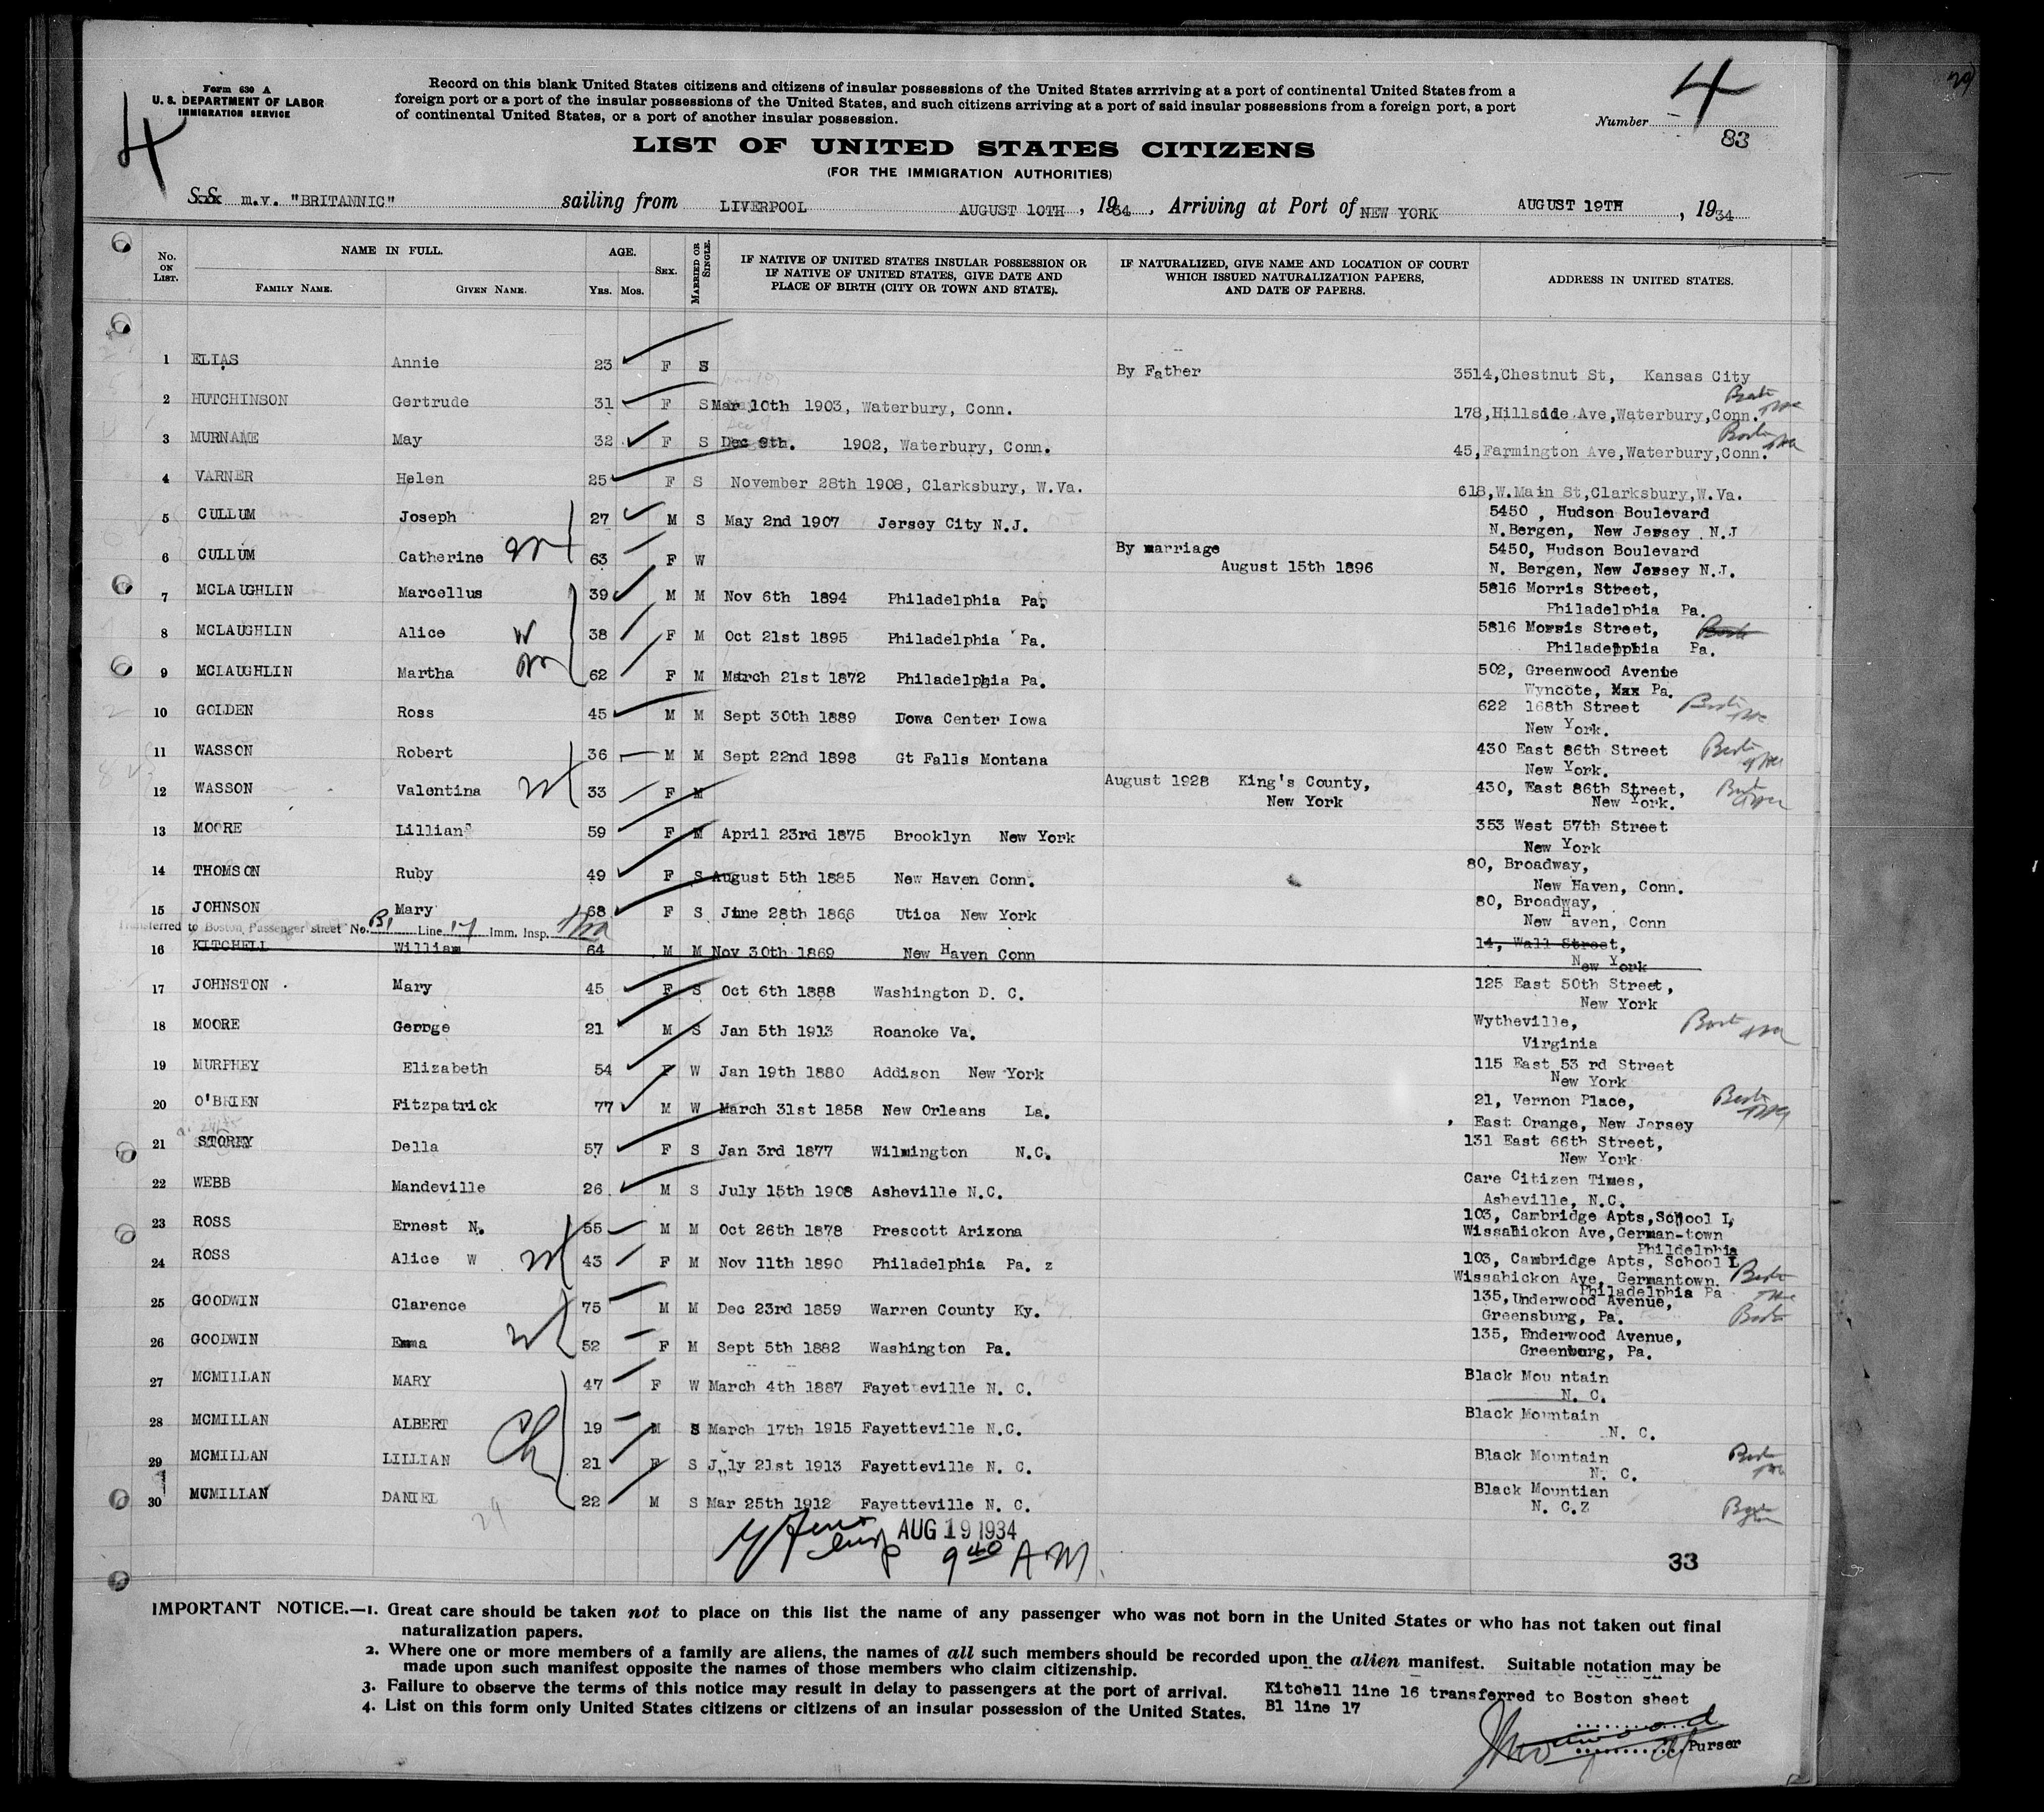 Form 630 A
U. S. DEPARTMENT OF LABOR
IMMIGRATION SERVICE
4
Record on this blank United States citizens and citizens of insular possessions of the United States arrriving at a port of continental United States from a
foreign port or a port of the insular possessions of the United States, and such citizens arriving at a port of said insular possessions from a foreign port, a port
of continental United States, or a port of another insular possession.
Number 4
83
LIST OF UNITED STATES CITIZENS
(FOR THE IMMIGRATION AUTHORITIES)
S.S. m.v. "BRITANNIC" sailing from LIVERPOOL AUGUST 10TH , 1934 , Arriving at Port of NEW YORK AUGUST 19TH , 1934
No. ON LIST. NAME IN FULL. AGE. SEX. MARRIED OR SINGLE. IF NATIVE OF UNITED STATES INSULAR POSSESSION OR IF NATIVE OF UNITED STATES, GIVE DATE AND PLACE OF BIRTH (CITY OR TOWN AND STATE). IF NATURALIZED, GIVE NAME AND LOCATION OF COURT WHICH ISSUED NATURALIZATION PAPERS, AND DATE OF PAPERS. ADDRESS IN UNITED STATES.
FAMILY NAME. GIVEN NAME. YRS. MOS.
1 ELIAS Annie 23 F S By Father 3514,Chestnut St, Kansas City
2 HUTCHINSON Gertrude 31 F S Mar 10th 1903, Waterbury, Conn. 178,Hillside Ave,Waterbury,Conn.
3 MURNAME May 32 F S Dec 9th. 1902, Waterbury, Conn. 45,Farmington Ave,Waterbury,Conn.
4 VARNER Helen 25 F S November 28th 1908, Clarksbury, W.Va. 618,W.Main St,Clarksbury,W.Va.
5 CULLUM Joseph 27 M S May 2nd 1907 Jersey City N.J. 5450 , Hudson Boulevard
N.Bergen, New Jersey N.J
6 CULLUM Catherine 63 F W By marriage August 15th 1896 5450, Hudson Boulevard
N. Bergen, New Jersey N.J.
7 MCLAUGHLIN Marcellus 39 M M Nov 6th 1894 Philadelphia Pa. 5816 Morris Street,
Philadelphia Pa.
8 MCLAUGHLIN Alice 38 F M Oct 21st 1895 Philadelphia Pa. 5816 Morris Street,
Philadelphia Pa.
9 MCLAUGHLIN Martha 62 F M March 21st 1872 Philadelphia Pa. 502, Greenwood Avenue
Wyncote, Pa.
10 GOLDEN Ross 45 M M Sept 30th 1889 Iowa Center Iowa 622 168th Street
New York.
11 WASSON Robert 36 M M Sept 22nd 1898 Gt Falls Montana 430 East 86th Street
New York.
12 WASSON Valentina 33 F M August 1928 King's County, New York 430, East 86th Street,
New York.
13 MOORE Lillian 59 F M April 23rd 1875 Brooklyn New York 353 West 57th Street
New York
14 THOMSON Ruby 49 F S August 5th 1885 New Haven Conn. 80, Broadway,
New Haven, Conn.
15 JOHNSON Mary 68 F S June 28th 1866 Utica New York 80, Broadway,
New Haven, Conn
Transferred to Boston Passenger sheet No. B1 Line 17 Imm. Insp.
16 KITCHELL William 64 M M Nov 30th 1869 New Haven Conn 14, Wall Street,
New York
17 JOHNSTON Mary 45 F S Oct 6th 1888 Washington D. C. 125 East 50th Street,
New York
18 MOORE George 21 M S Jan 5th 1913 Roanoke Va. Wytheville,
Virginia
19 MURPHEY Elizabeth 54 F W Jan 19th 1880 Addison New York 115 East 53 rd Street
New York
20 O'BRIEN Fitzpatrick 77 M W March 31st 1858 New Orleans La. 21, Vernon Place,
East Orange, New Jersey
21 STOREY Della 57 F S Jan 3rd 1877 Wilmington N.C. 131 East 66th Street,
New York
22 WEBB Mandeville 26 M S July 15th 1908 Asheville N.C. Care Citizen Times,
Asheville, N.C.
23 ROSS Ernest N. 55 M M Oct 26th 1878 Prescott Arizona 103, Cambridge Apts,School L,
Wissahickon Ave,German-town
Phildelphia
24 ROSS Alice W 43 F M Nov 11th 1890 Philadelphia Pa. z 103, Cambridge Apts, School L
Wissahickon Ave, Germantown.
Philadelphia Pa
25 GOODWIN Clarence 75 M M Dec 23rd 1859 Warren County Ky. 135,Underwood Avenue,
Greensburg, Pa.
26 GOODWIN Emma 52 F M Sept 5th 1882 Washington Pa. 135, Enderwood Avenue,
Greenburg, Pa.
27 MCMILLAN MARY 47 F W March 4th 1887 Fayetteville N. C. Black Mountain
N. C.
28 MCMILLAN ALBERT 19 M S March 17th 1915 Fayetteville N.C. Black Mountain
N. C.
29 MCMILLAN LILLIAN 21 F S July 21st 1913 Fayetteville N. C. Black Mountain
N. C.
30 MCMILLAN DANIEL 22 M S Mar 25th 1912 Fayetteville N. C. Black Mountian
N. C.Z
AUG 19 1934
9 40 A.M.
33
IMPORTANT NOTICE.—1. Great care should be taken not to place on this list the name of any passenger who was not born in the United States or who has not taken out final
naturalization papers.
2. Where one or more members of a family are aliens, the names of all such members should be recorded upon the alien manifest. Suitable notation may be
made upon such manifest opposite the names of those members who claim citizenship.
3. Failure to observe the terms of this notice may result in delay to passengers at the port of arrival.
4. List on this form only United States citizens or citizens of an insular possession of the United States.
Kitchell line 16 transferred to Boston sheet
B1 line 17
Purser